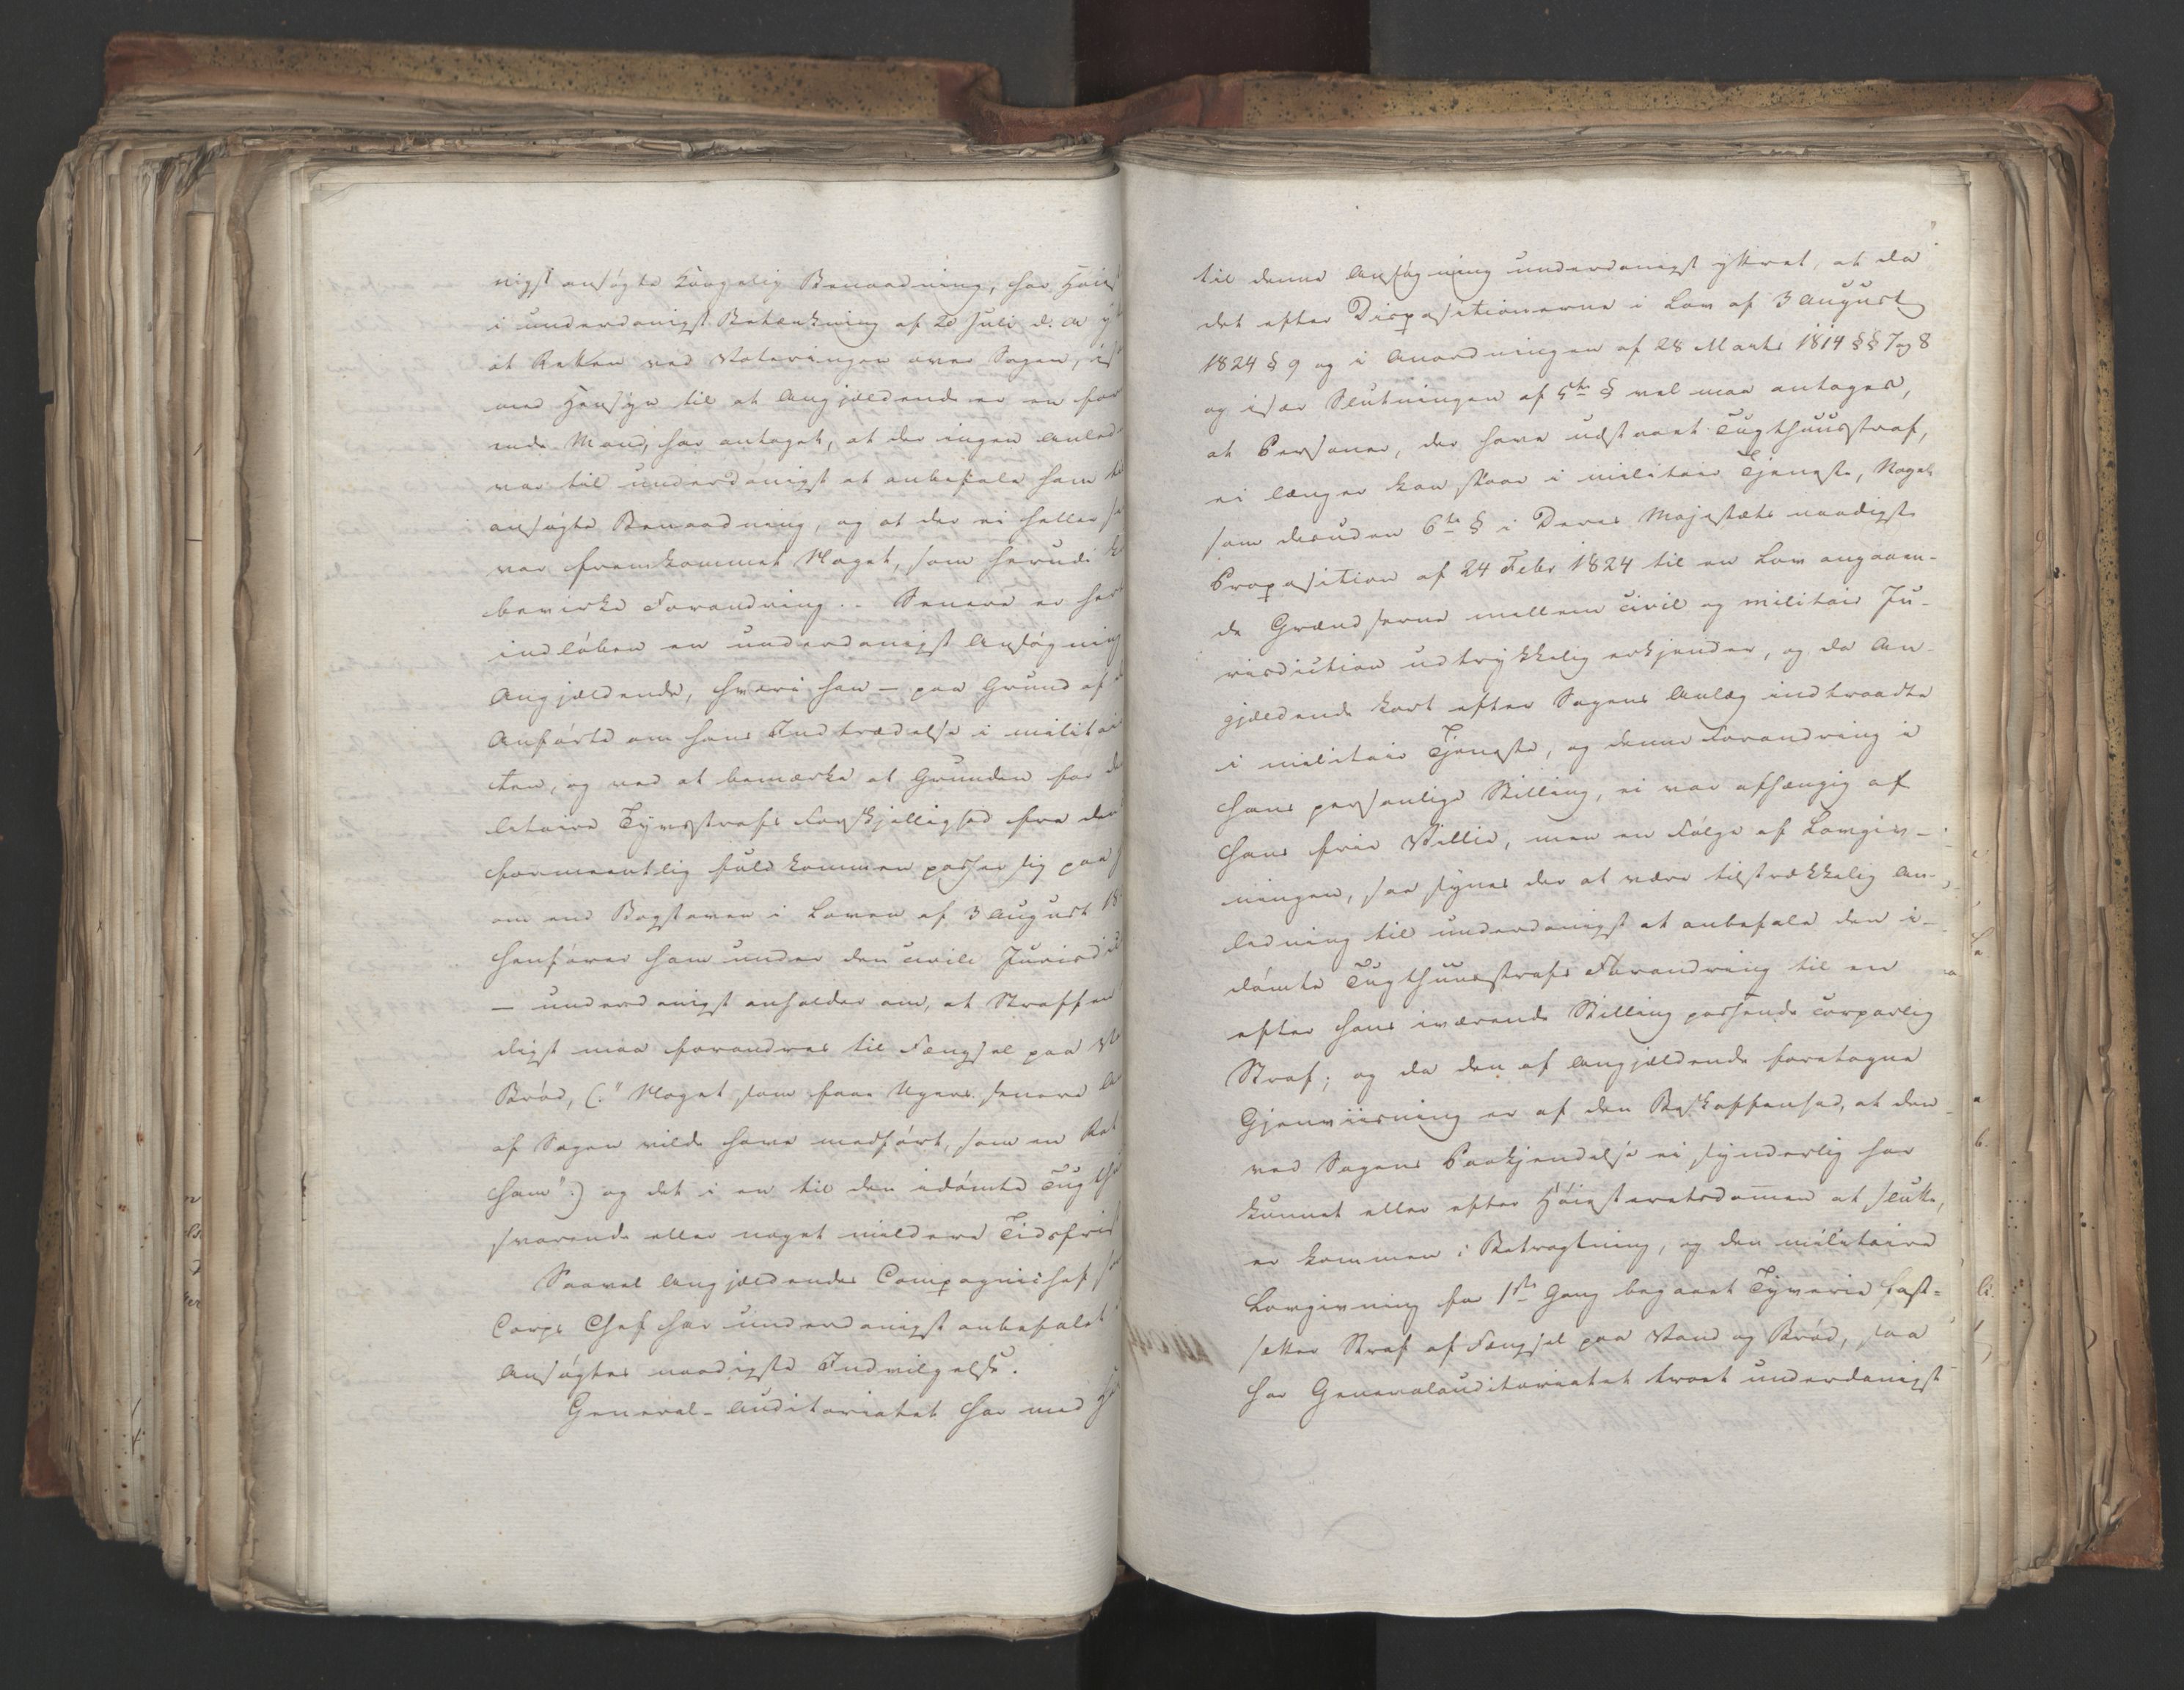 nigst ansøgte Kongelig Benaadning, har Høies
i underdanigst Betænkning af 20 Juli d. A. y
at Retten ved Voteringen over Sagen,
med Hensyn til at Angjældende er en for
ende Mand, har antaget, at der ingen Anled
var til underdanigst at anbefale ham til
ansøgte Benaadning, og at der ei heller
var fremkommet Noget, som herudi k
bevirke Forandring. Senere er her
indløben en underdanigst Ansøgning
Angjældende, hvori han – paa Grund af
Anførte om hans Indtrædelse i militai
ten, og ved at bemærke at Grunden for de
litaire Tyvsstrafs Forskjellighed fra den
formeentlig fuldkommen passer sig paa
om end Bogstaven i Loven af 3 August 18
henfører ham under den civile Jurisdic
– underdanigst anholder om, at Straffen
digst maa forandres til Fængsel paa V
Brød, (:"Noget som faae Ugers senere A
af Sagen vilde have medført, som en Ret
ham":) og det i en til den idømte Tugth
svarende eller noget mildere Tidsfrist
Saavel Angjældendes Compagniechef so
Corps Chef har underdanigst anbefalet
Ansøgtes naadigste Indvilgelse.
General-Auditoriatet har med H
til denne Ansøgning underdanigst yttret, at da
det efter Dispositionerne i Lov af 3 August
1824 § 9 og i Anordningen af 28 Marts 1814 §§ 7 og 8
og især Slutningen af 5te § vel maa antages,
at Personer, der have udstaaet Tugthuusstraf,
ei længer kan staae i militair Tjeneste, Noget
som desuden 6te § i Deres Majestæts naadigste
Proposition af 24 Febr 1824 til en Lov angaaen-
de Grændserne mellem civil og militair Ju-
risdiction udtrykkelig erkjender, og da An-
gjældende kort efter Sagens Anlæg indtraadte
i militair Tjeneste, og denne Forandring i
hans personlige Stilling, ei var afhængig af
hans frie Villie, men en Følge af Lovgiv-
ningen, saa synes der at være tilstrækkelig An-
ledning til underdanigst at anbefale den i-
dømte Tugthuusstrafs Forandring til en
efter hans iværende Stilling passende corporlig
Straf; og da den af Angjældende foretagne
Gjenviisning er af den Beskaffenhed, at den
ved Sagens Paakjendelse ei synderlig har
kunnet eller efter Høiesteretsdommen at slutte,
er kommen i Betragtning, og den militaire
Lovgivning for 1ste Gang begaaet Tyverie fast-
sætter Straf af Fængsel paa Vand og Brød, saa
har Generalauditoriatet troet underdanigst